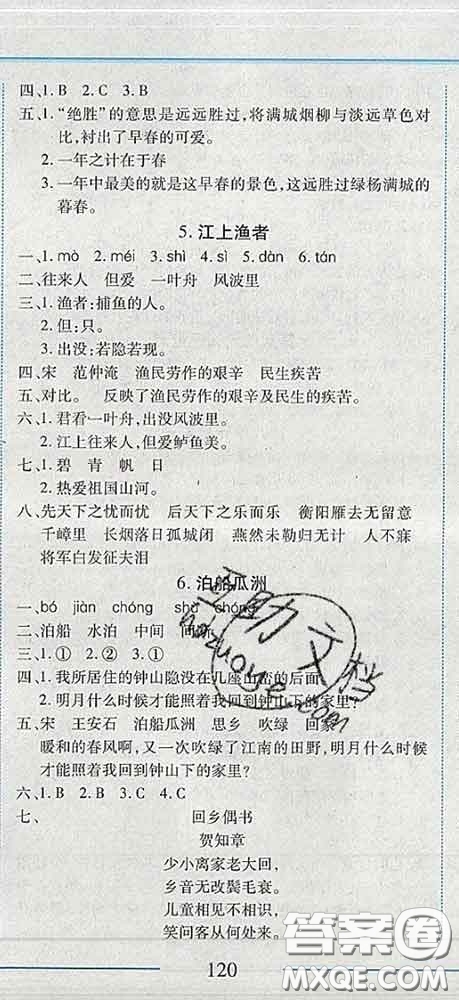 四、1. B　2. C　3. B
五、1. “绝胜”的意思是远远胜过，将满城烟柳与淡远草色对
比，衬出了早春的可爱。
2. 一年之计在于春
3. 一年中最美的就是这早春的景色，这远胜过绿杨满城的
暮春。
5. 江上渔者
一、1. mò　2. méi　3. shì　4. sì　5. dàn　6. tán
二、往来人　但爱　一叶舟　风波里
三、1. 渔者：捕鱼的人。
2. 但：只。
3. 出没：若隐若现。
四、宋　范仲淹　渔民劳作的艰辛　民生疾苦
五、对比。　反映了渔民劳作的艰辛及民生的疾苦。
六、1. 君看一叶舟，出没风波里。
2. 江上往来人，但爱鲈鱼美。
七、1. 碧　青　帆　日
2. 热爱祖国山河。
八、先天下之忧而忧　后天下之乐而乐　衡阳雁去无留意
千嶂里　长烟落日孤城闭　燕然未勒归无计　人不寐
将军白发征夫泪
6. 泊船瓜洲
一、bó　jiàn　chóng　shù　chóng
二、泊船　水泊　中间　间断
三、1. ①　2. ①　3. ①
四、1. 我所居住的钟山隐没在几座山峦的后面
2. 明月什么时候才能照着我回到钟山下的家里？
五、宋　王安石　泊船瓜洲　思乡　吹绿　回家
暖和的春风啊，又一次吹绿了江南的田野，明月什么时候
才能照着我回到钟山下的家里？
六、1. B　2. B　3. C　4. C
七、
回乡偶书
贺知章
少小离家老大回，
乡音无改鬓毛衰。
儿童相见不相识，
笑问客从何处来。
120
答案圈
MXQE.COM